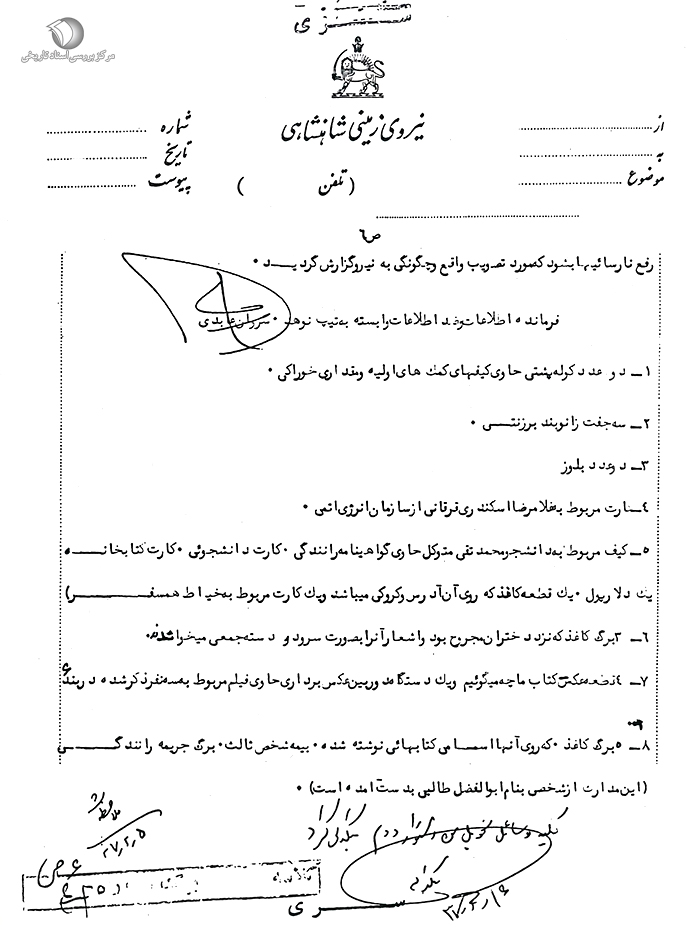 سری
مرکز بررسی اسناد تاریخی
نیروی زمینی شاهنشاهی
از
به
موضوع
شماره
تاریخ
پیوست
( تلفن )
ص۶
رفع نارسائیها بشود که مورد تصویب واقع وچگونگی به نیروگزارش گردید ۰
فرمانده اطلاعات وضد اطلاعات وابسته به تیپ نوهد ۰
۱ـ دو عدد کوله پشتی حاوی کیفهای کمک های اولیه ومقداری خوراکی ۰
۲ـ سه جفت زانوبند برزنتی ۰
۳ـ دوعدد بلوز
۴ـ کارت مربوط بغلامرضا اسکندری ترقانی ازسازمان انرژی اتمی ۰
۵ـ کیف مربوط به دانشجومحمد تقی متوکل حاوی گواهینامه رانندگی ۰ کارت دانشجوئی ۰ کارت کتابخانه
یک دلار پول ۰ یک قطعه کاغذ که روی آن آدرس وکروکی میباشد ویک کارت مربوط به خیاط همسفر)
۶ـ ۲برگ کاغذ که نزد دختران مجروح بود واشعار آنرا بصورت سرود و دسته جمعی میخوا
۷ـ ۴قطعه عکس کتاب ما چه میگوئیم ویک دستگاه دوربین عکس برداری حاوی فیلم مربوط به سه نفر ذکر شده در بند ۶
۸ـ ۵برگ کاغذ ۰ که روی آنها اسامی کتابهائی نوشته شده ۰ بیمه شخص ثالث ۰ برگ جریمه رانندگی
(این مدارک ازشخصی بنام ابوالفضل طالبی بدست آمده است) ۰
ملاحظه شد
کلیه وسائل تحویل من
۳۷٫۲٫۵
سری